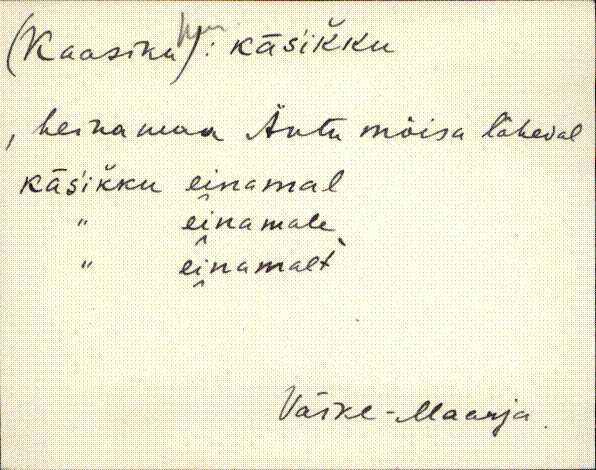 (Kaasiku): käsikku
, heinamaa Äntu mõisa läheval
käsikku einamal
" einamale
" einamalt
Väike-Maarja